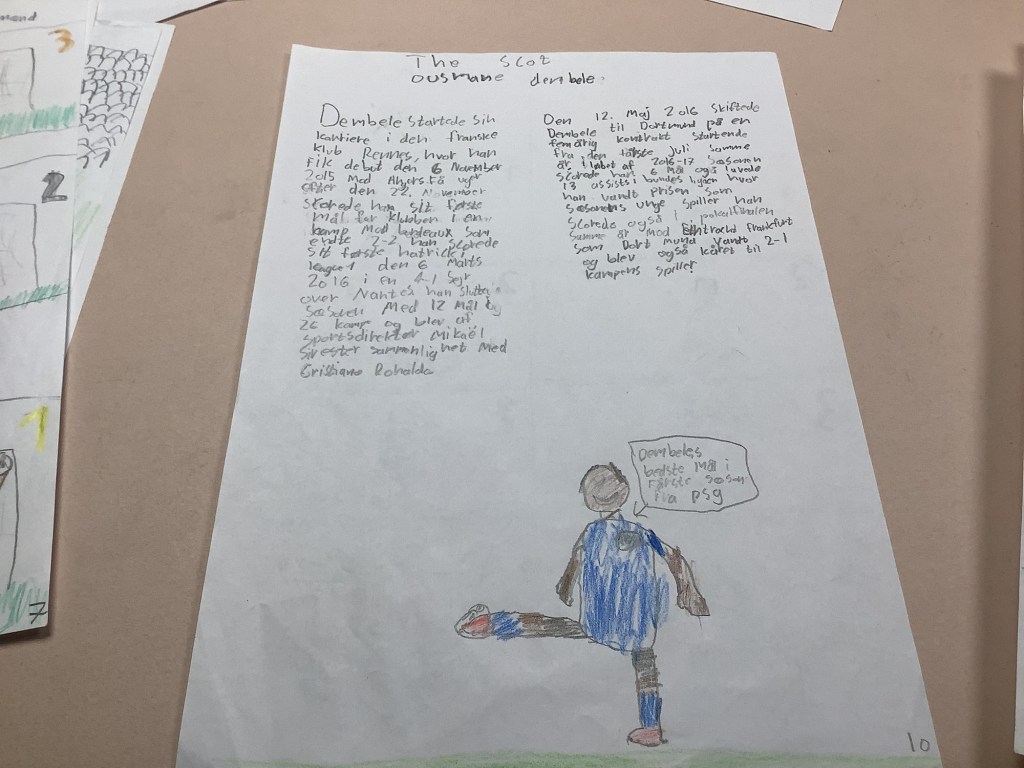 mand
3
2
1
7
The Scot
ousmane dembele.
Dembele startede sin
karriere i den franske
Klub Rennes, hvor han
Fik debut den 6 November
2015 Mod Angers. Få uger
efter den 22 November
scorede han sit første
Mål for klubben i en
kamp Mod bordeaux som
endte 2-2 han scorede
sit første hatrick i
league1 den 6 Marts
2016 i en 4-1 Sejr
over Nantes han sluttede
sæsonen Med 12 Mål og
26 kamp og blev af
sportsdirektør Mikaël
Silvester sammenlignet Med
Cristiano Rohalda
Den 12. Maj 2016 skiftede
Dembele til Dortmund på en
femårig kontrakt startende
fra den første juli samme
år I løbet af 2016-17 sæsonen
scorede han 6 Mål og lavede
13 assists i bundesligaen hvor
han vandt prisen som
sæsonens unge spiller han
scorede også i pokalfinalen
samme år Mod Eintracht Frankfurt
som Dortmund vandt 2-1
og blev også kåret til
kampens spiller
Dembeles
bedste Mål i
første sæson
fra psg
10